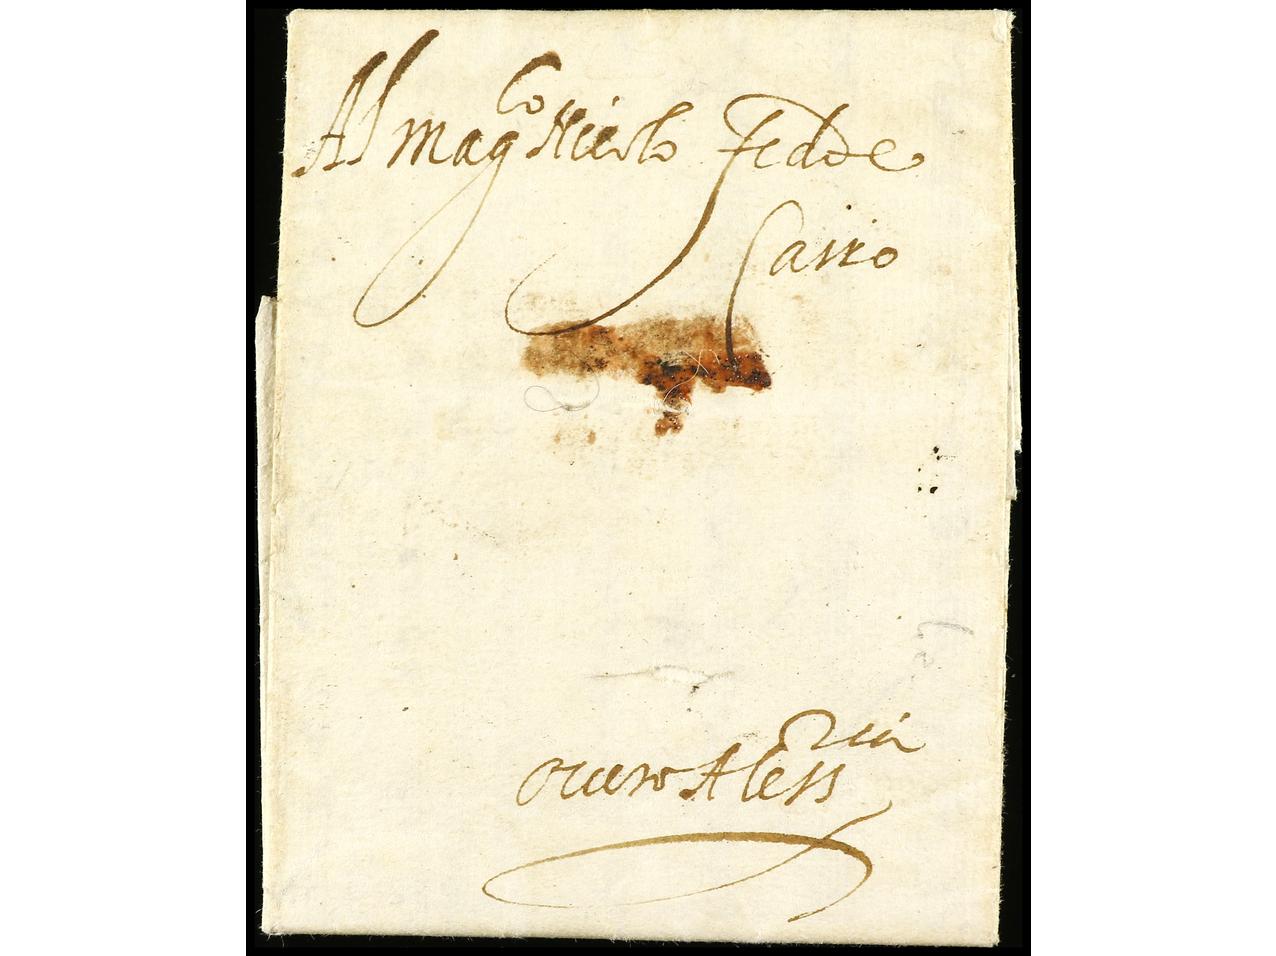 Al mag.co Nicolo Fedde
Cairo
overo Aless.ria